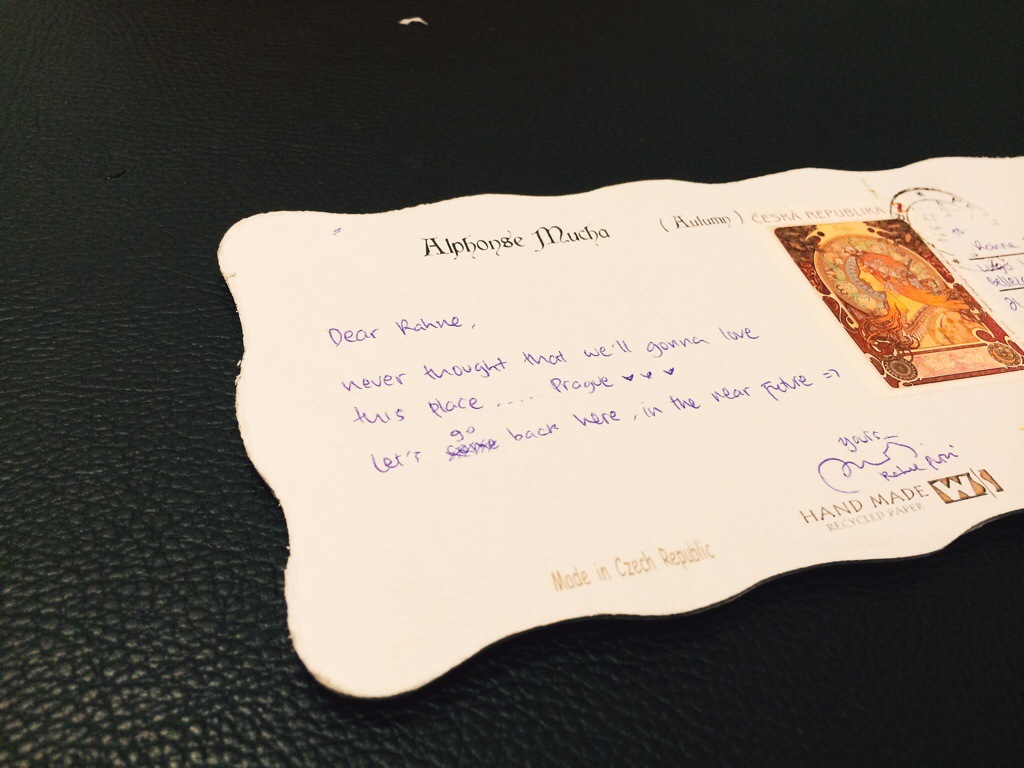 Alphonse Mucha (Autumn) ČESKÁ REPUBLIKA
Dear Rahne,
never thought that we'll gonna love
this place ..... Prague ♥ ♥ ♥
go
Let's come back here, in the near future =)
yours,
HAND MADE
RECYCLED PAPER
Made in Czech Republic